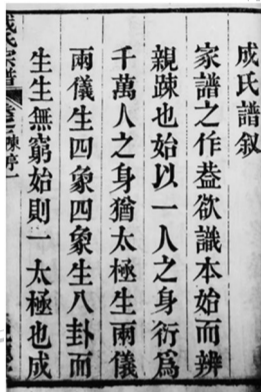 成氏譜叙
家譜之作葢欲識本始而辨
親踈也始以一人之身衍爲
千萬人之身猶太極生兩儀
兩儀生四象四象生八卦而
生生無窮始則一太極也成
成氏宗譜